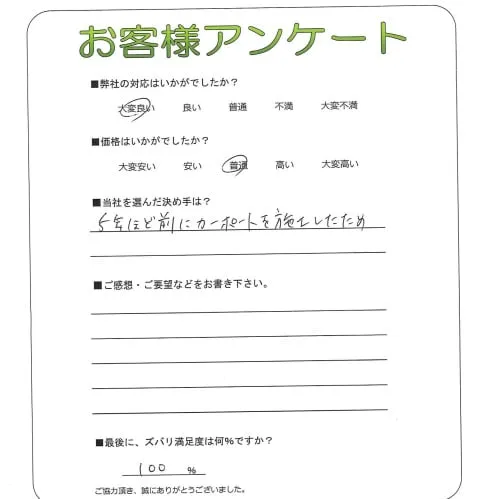 お客様アンケート
■弊社の対応はいかがでしたか？
大変良い 良い 普通 不満 大変不満
■価格はいかがでしたか？
大変安い 安い 普通 高い 大変高い
■当社を選んだ決め手は？
5年ほど前にカーポートを施工したため
■ご感想・ご要望などをお書き下さい。
■最後に、ズバリ満足度は何%ですか？
100 %
ご協力頂き、誠にありがとうございました。